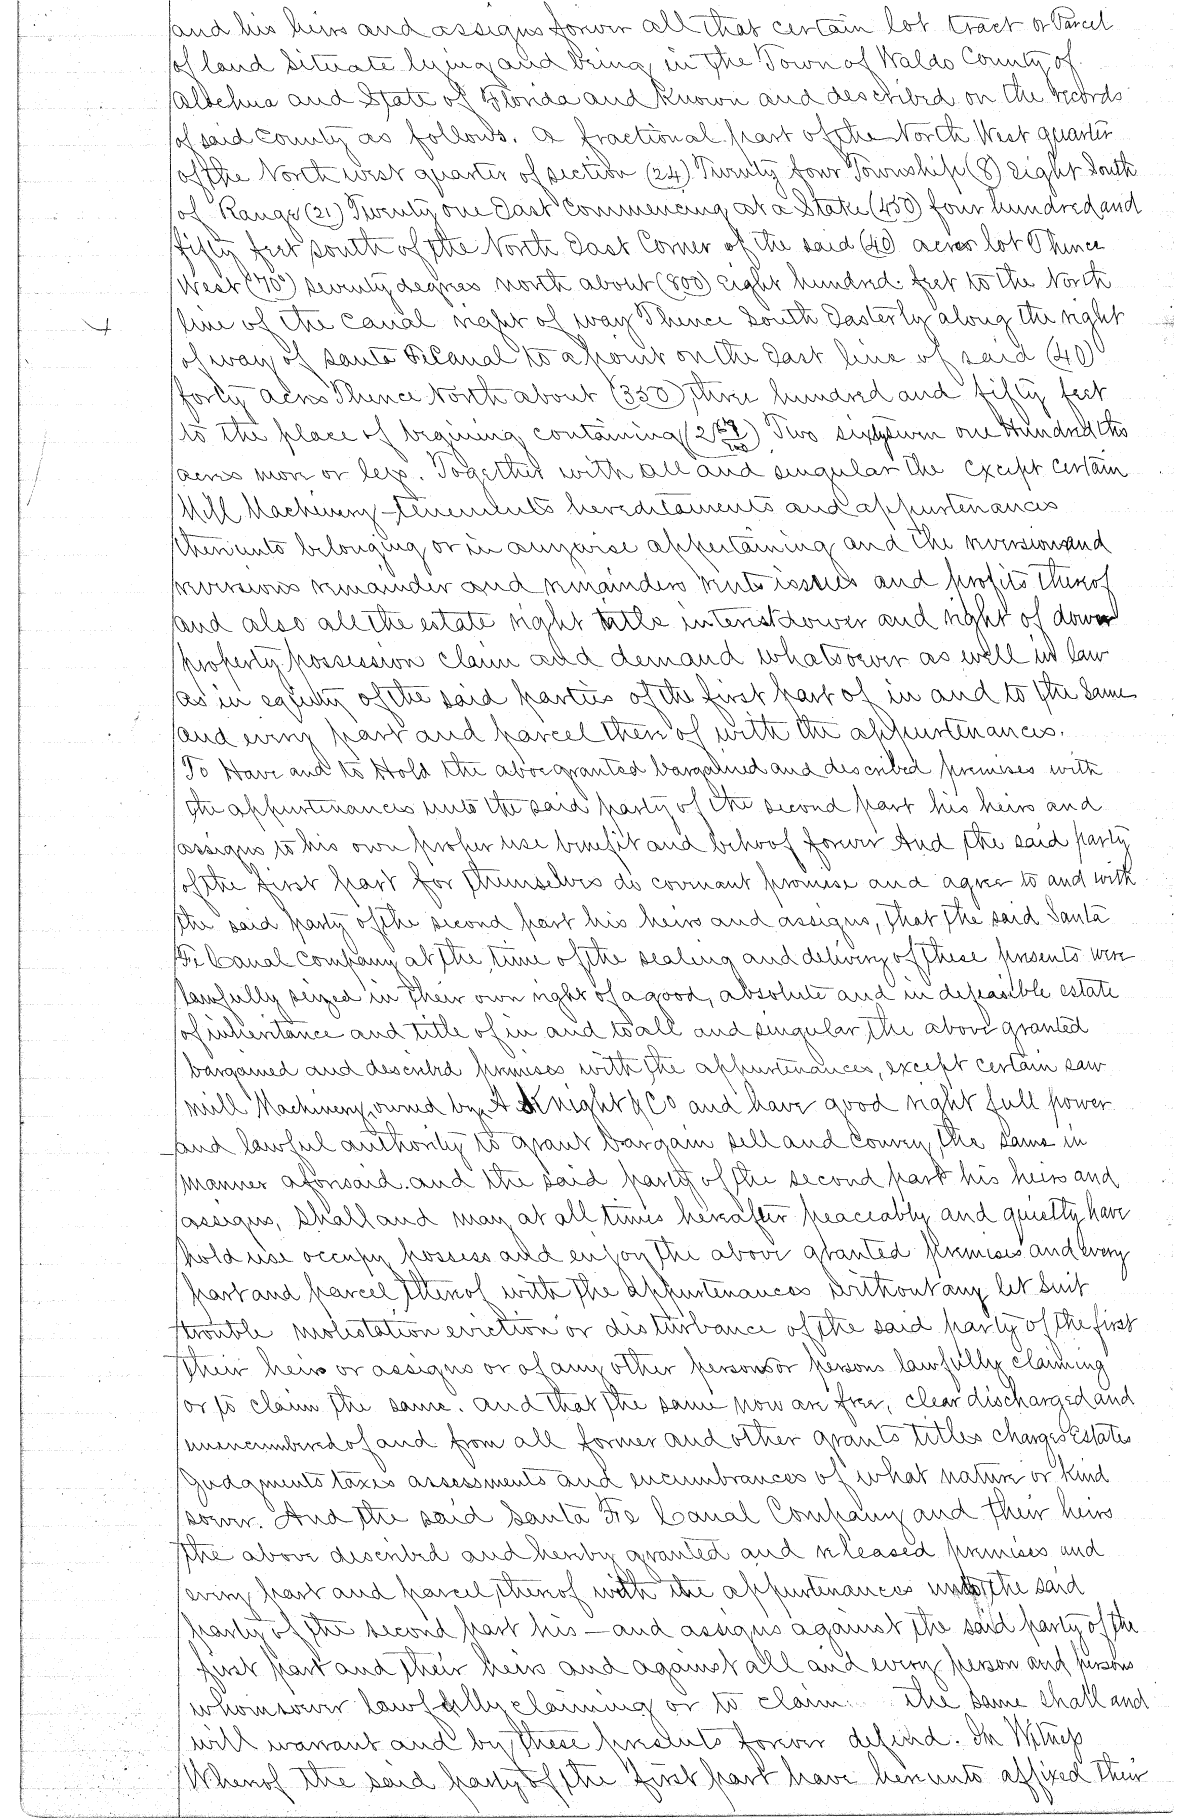 and his heirs and assigns forever all that certain lot tract or Parcel
of land Situate lying and being in the Town of Waldo County of
Alachua and State of Florida and Known and described on the records
of said County as follows. A fractional part of the North West quarter
of the North west quarter of section (24) Twenty four Township (8) Eight South
of Range (21) Twenty one East Commencing at a Stake (450) four hundred and
fifty feet south of the North East Corner of the said (40) acres lot Thence
West (70°) seventy degrees north about (800) Eight hundred feet to the North
line of the Canal right of way Thence South Easterly along the right
of way of Santa Fe Canal to a point on the East line of said (40)
forty acres Thence North about (350) three hundred and fifty feet
to the place of begining containing (2 67/100) Two sixty seven one Hundredths
acres more or less. Together with all and singular the except certain
Mill Machinery tenements hereditaments and appurtenances
thereunto belonging or in anywise appertaining and the reversion and
reversions remainder and remainders rents issues and profits thereof
and also all the estate right title interest dower and right of dower
property possession claim and demand whatsoever as well in law
as in equity of the said parties of the first part of in and to the Same
and every part and parcel thereof with the appurtenances.
To Have and to Hold the above granted bargained and described premises with
the appurtenances unto the said party of the second part his heirs and
assigns to his own proper use benefit and behoof forever And the said party
of the first part for themselves do covenant promise and agree to and with
the said party of the second part his heirs and assigns, that the said Santa
Fe Canal Company at the time of the sealing and delivery of these presents were
lawfully seized in their own right of a good, absolute and indefeasible estate
of inheritance and title of in and to all and singular the above granted
bargained and described premises with the appurtenances, except certain saw
mill Machinery owned by A Knight & Co and have good right full power
and lawful authority to grant bargain sell and convey the same in
manner aforesaid. and the said party of the second part his heirs and
assigns, Shall and may at all times hereafter peaceably and quietly have
hold use occupy possess and enjoy the above granted premises and every
part and parcel thereof with the appurtenances without any let suit
trouble molestation eviction or disturbance of the said party of the first
their heirs or assigns or of any other persons or persons lawfully claiming
or to claim the same. And that the same now are free, clear discharged and
unencumbered of and from all former and other grants titles charges Estates
Judgments taxes assessments and encumbrances of what nature or kind
soever. And the said Santa Fe Canal Company and their heirs
the above described and hereby granted and released premises and
every part and parcel thereof with the appurtenances unto the said
party of the second part his — and assigns against the said party of the
first part and their heirs and against all and every person and persons
whomsoever lawfully claiming or to claim the same shall and
will warrant and by these presents forever defend. In Witness
Whereof the said party of the first part have hereunto affixed their